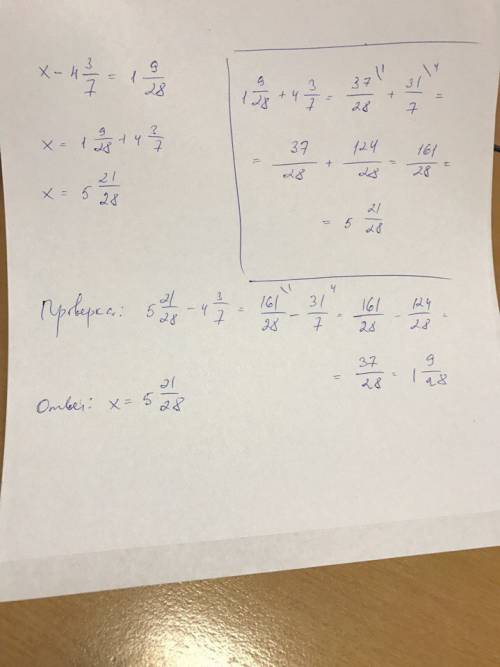 x - 4 3/7 = 1 9/28
x = 1 9/28 + 4 3/7
x = 5 21/28
1 9/28 + 4 3/7 = 37/28 \1 + 31/7 \4 =
= 37/28 + 124/28 = 161/28 =
= 5 21/28
Проверка: 5 21/28 - 4 3/7 = 161/28 \1 - 31/7 4 = 161/28 - 124/28 =
= 37/28 = 1 9/28
Ответ: x = 5 21/28